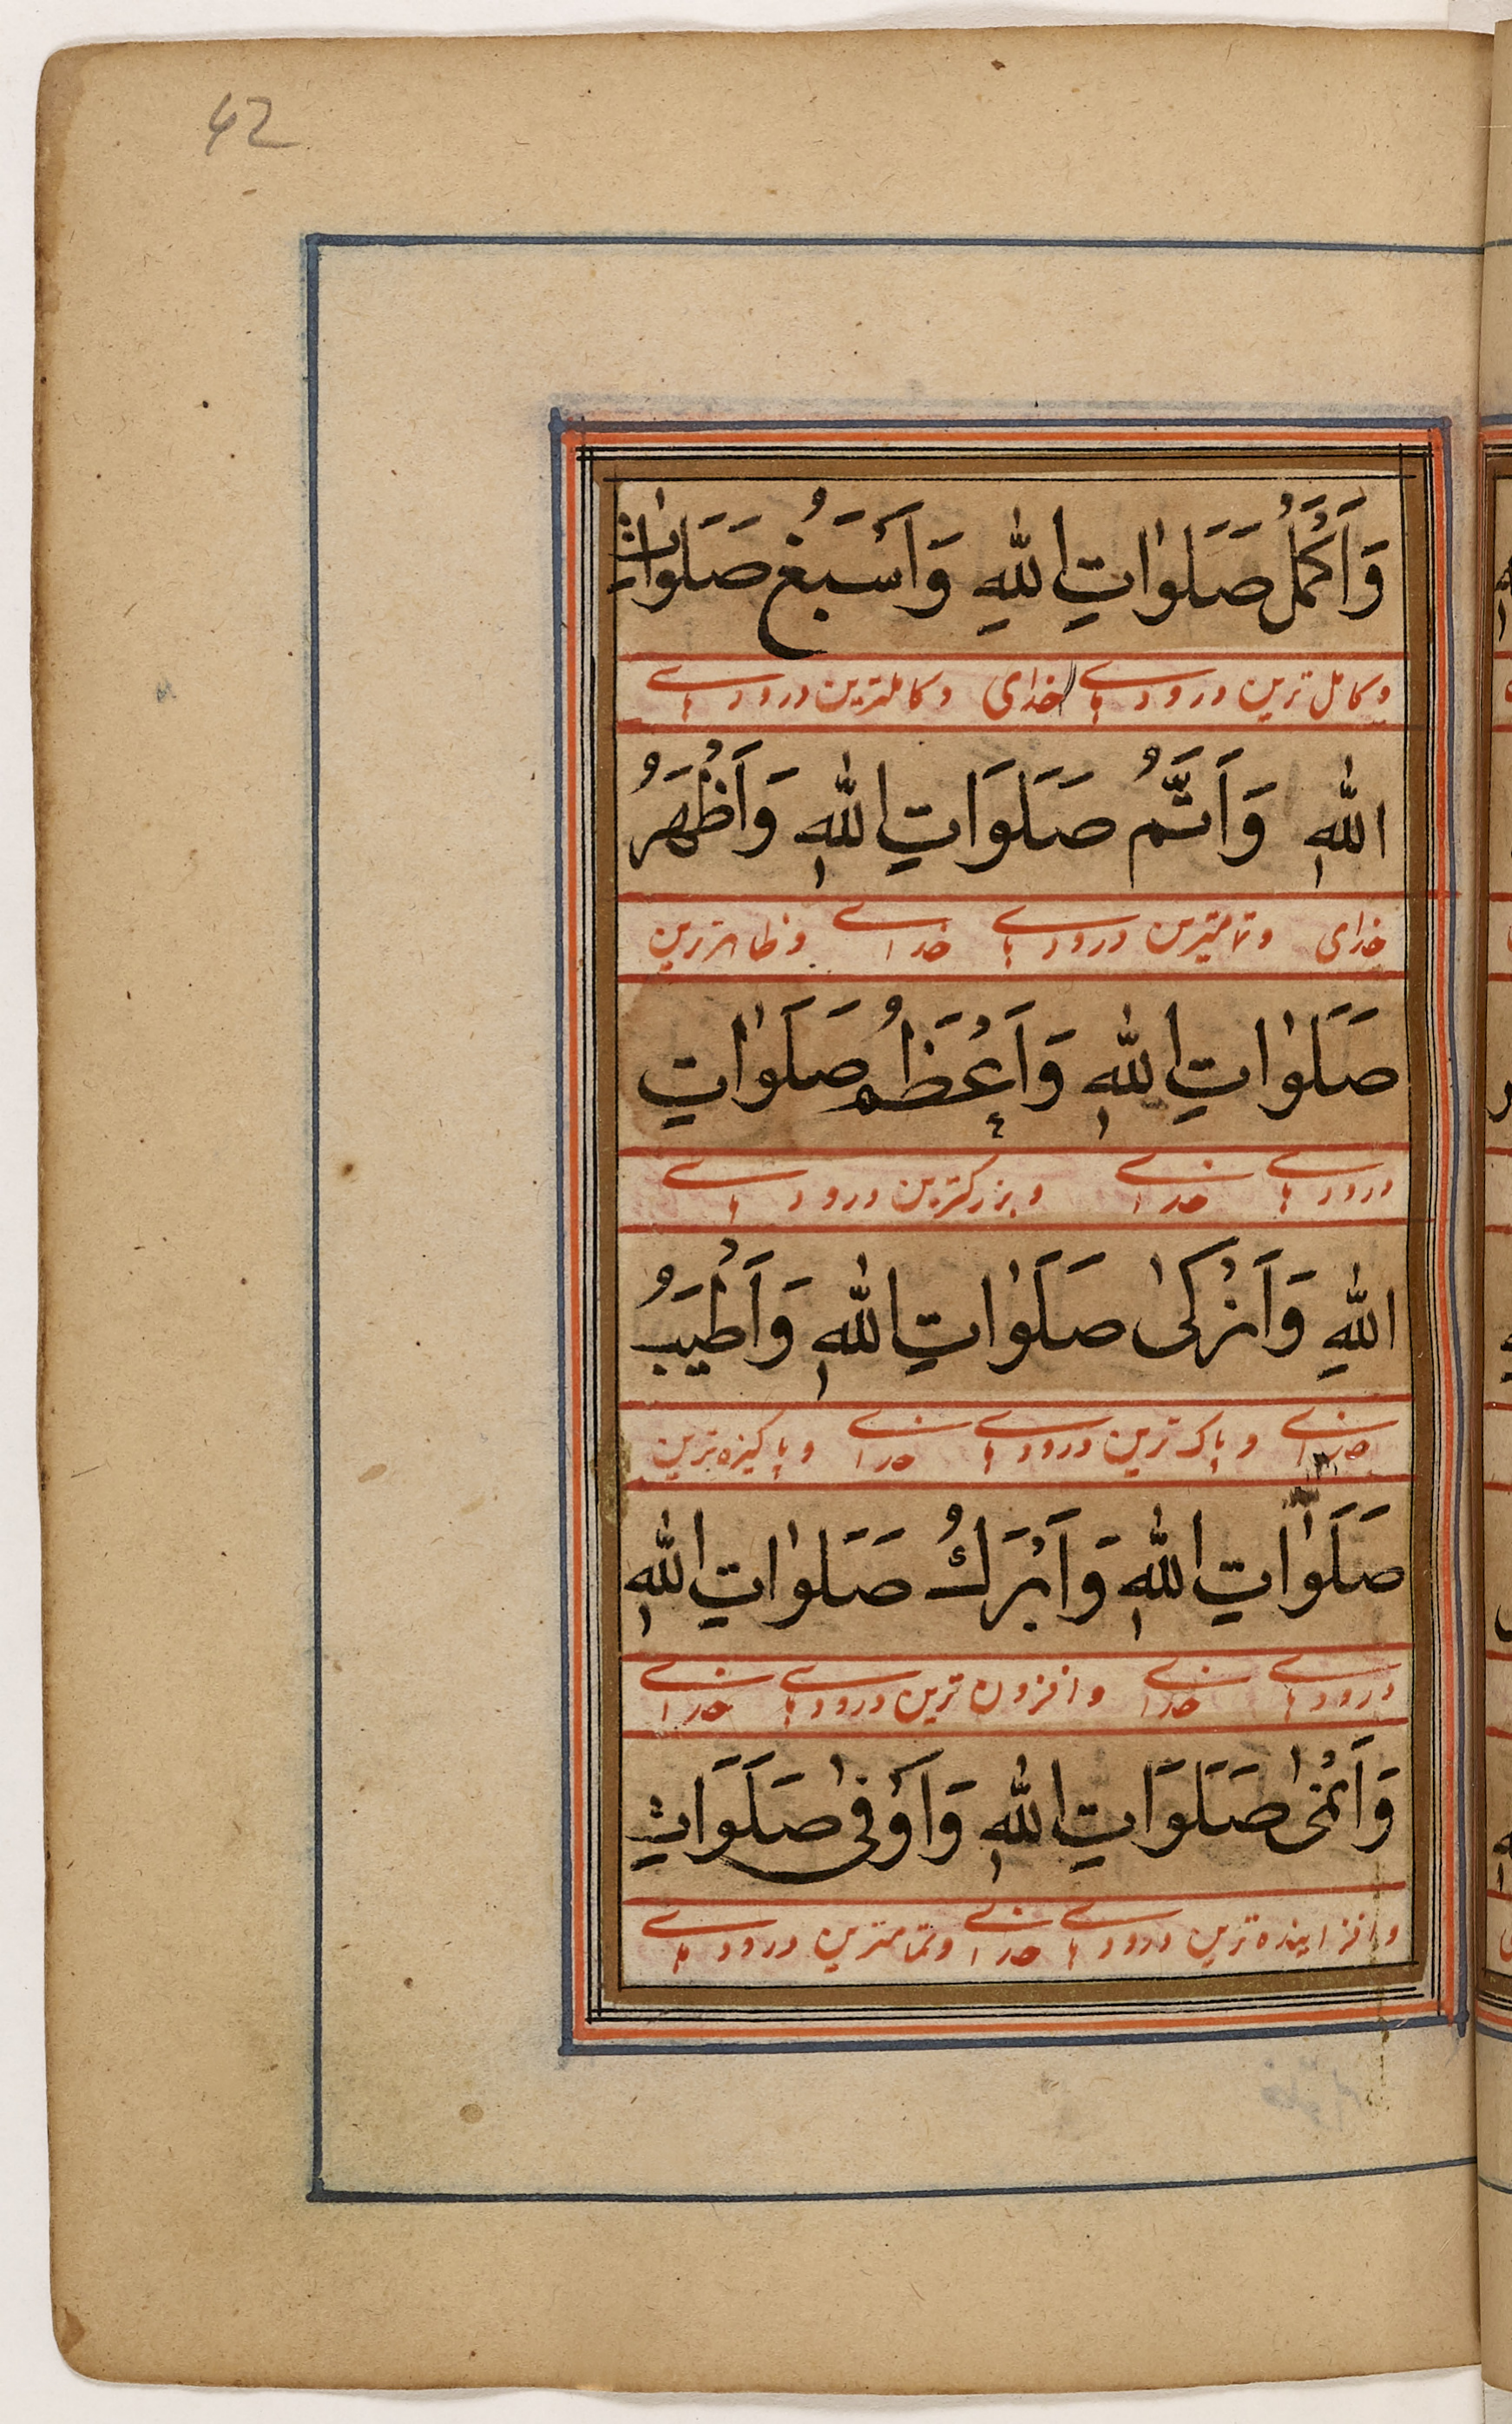 42
وَاَكْمَلُ صَلَوٰاتِ اللهِ وَاَسْبَغُ صَلَوٰاتِ
وکامل ترین درودهای خدای وکاملترین درودهای
اللهِ وَاَتَمُّ صَلَوَاتِ اللهِ وَاَظْهَرُ
خدای وتمامترین درودهای خدای وظاهرترین
صَلَوٰاتِ اللهِ وَاَعْظَمُ صَلَوٰاتِ
درودهای خدای وبزرگترین درودهای
اللهِ وَاَزْكىٰ صَلَوٰاتِ اللهِ وَاَطْيَبُ
خدای وپاک ترین درودهای خدای وپاکیزه ترین
صَلَوٰاتِ اللهِ وَاَبْرَكُ صَلَوٰاتِ اللهِ
درودهای خدای وافزون ترین درودهای خدای
وَاَنْمىٰ صَلَوَاتِ اللهِ وَاَوْفىٰ صَلَوَاتِ
وافزاینده ترین درودهای خدای وتمامترین درودهای